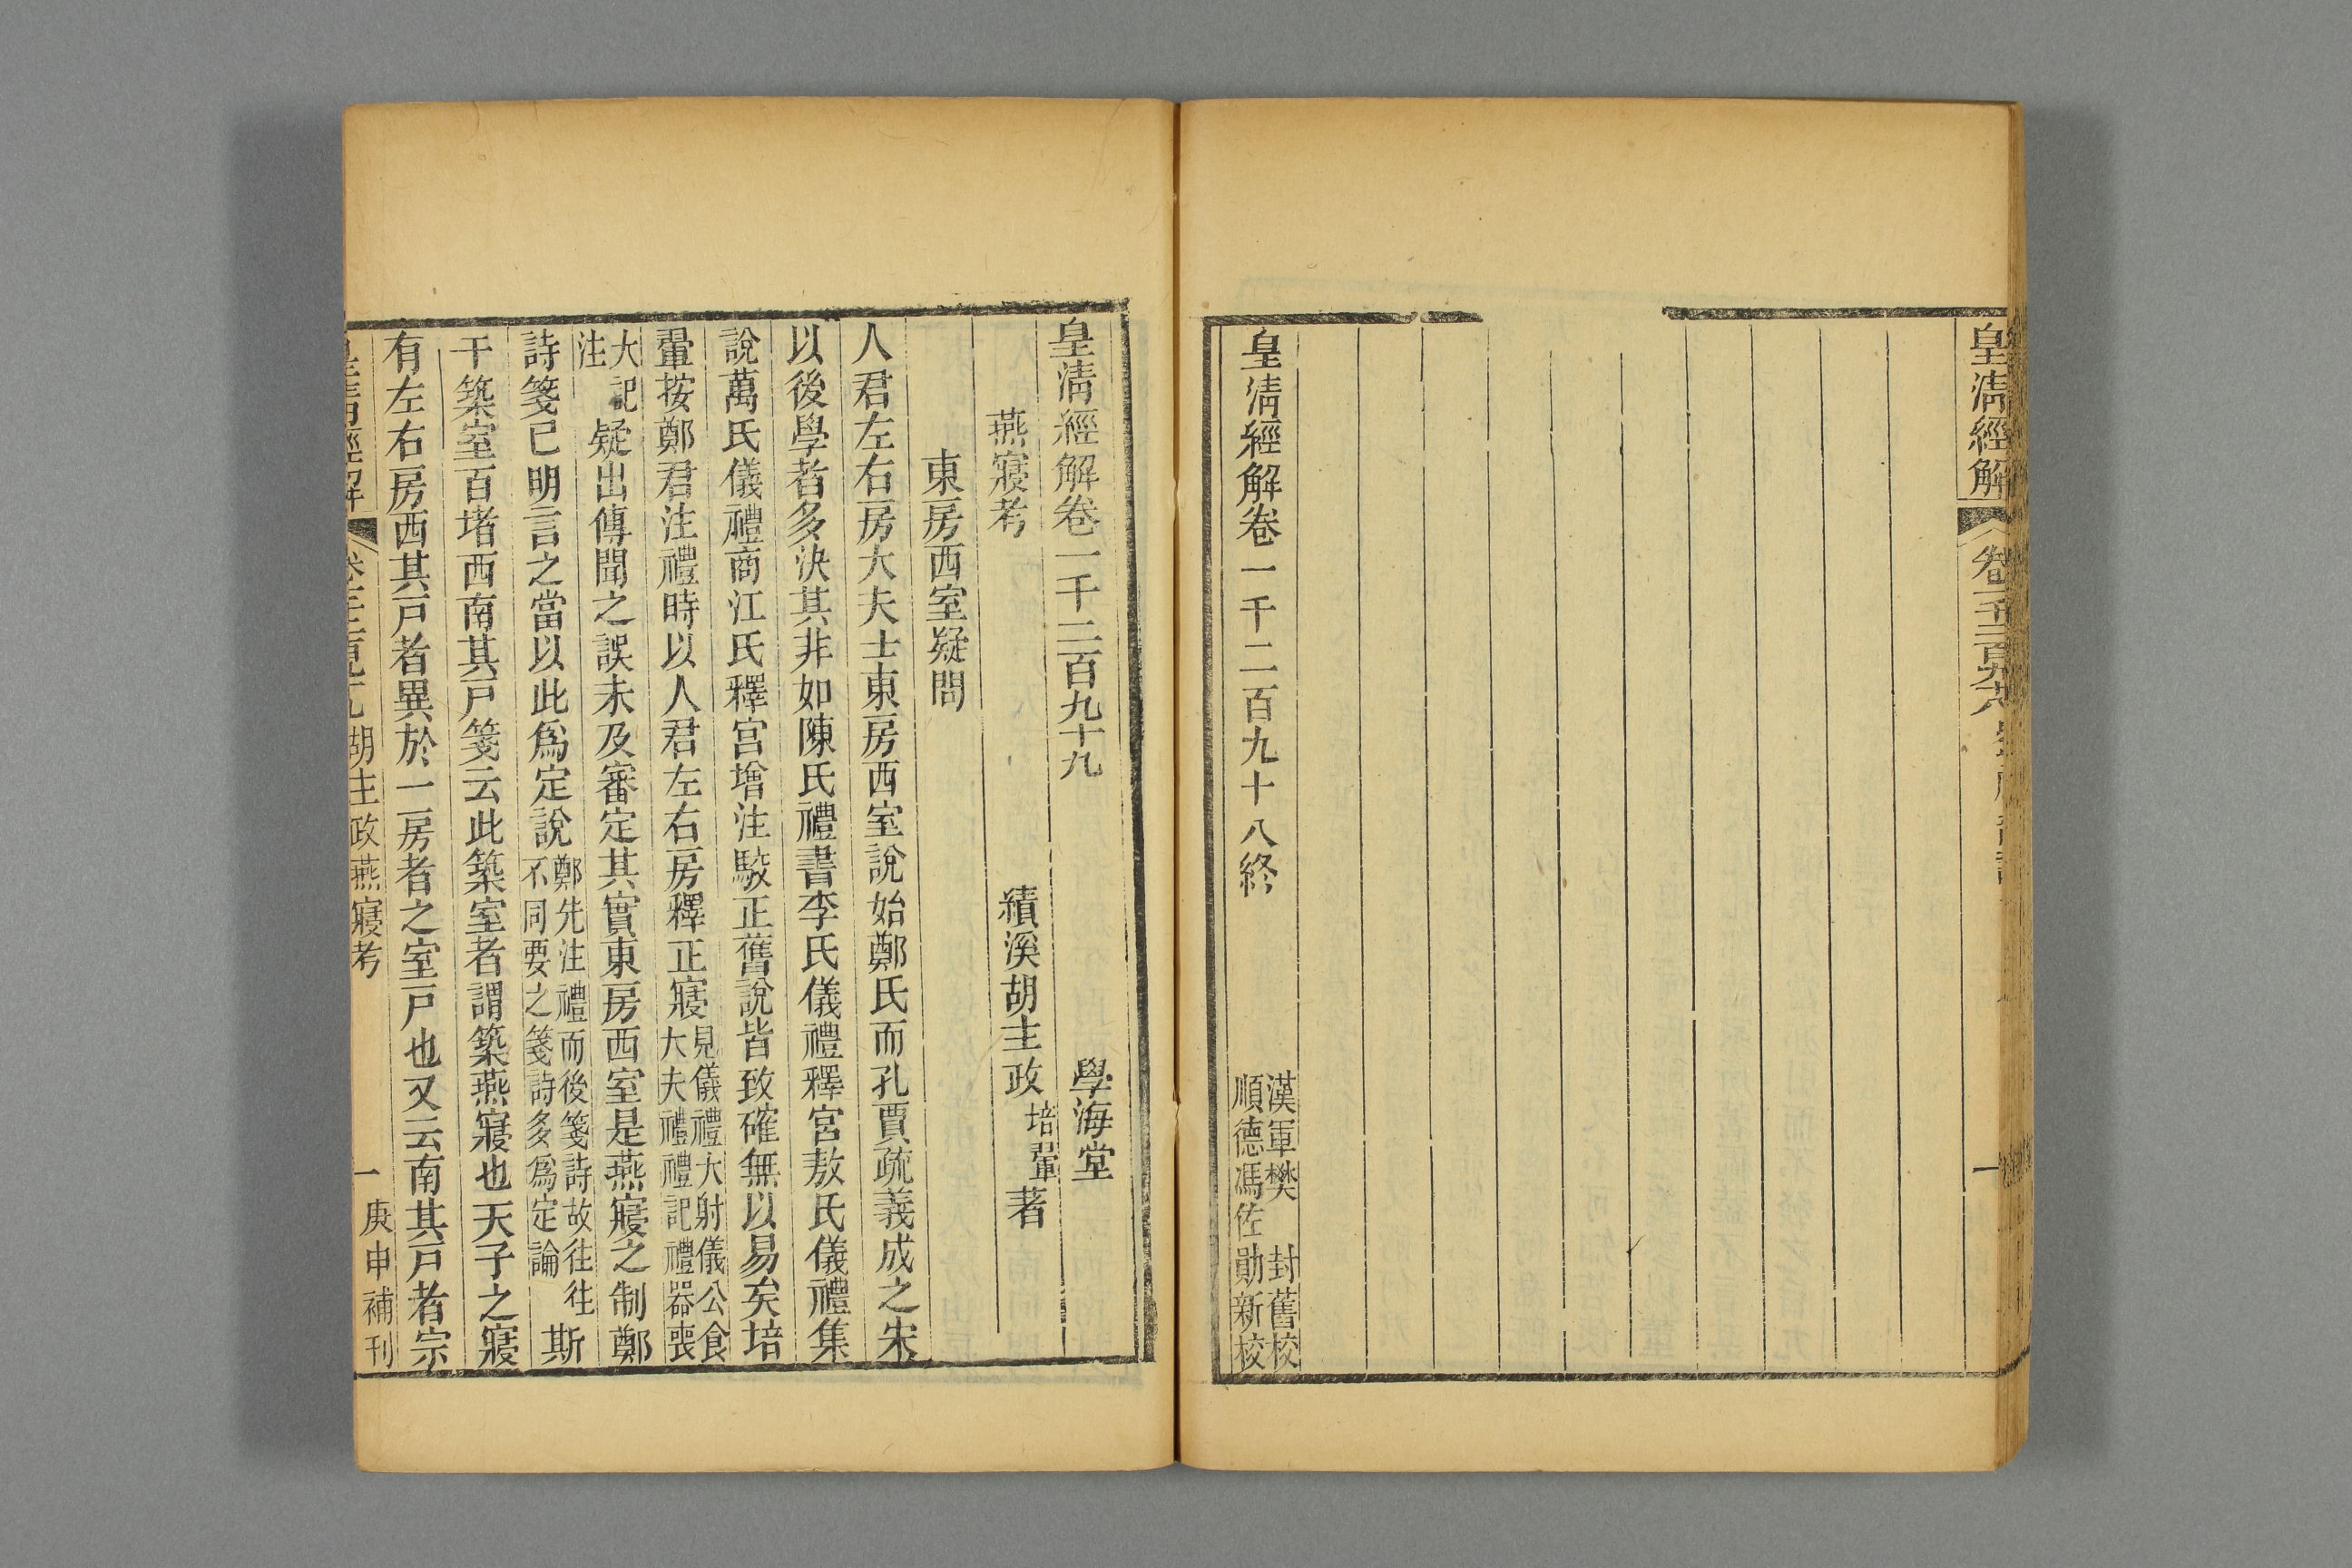 皇清經解
皇清經解卷一千二百九十八終
漢軍樊 封舊校
順德馮佐勛新校
皇清經解卷一千二百九十九
學海堂
燕寢考
績溪胡主政培翬著
東房西室疑問
人君左右房大夫士東房西室說始鄭氏而孔賈疏義成之宋
以後學者多決其非如陳氏禮書李氏儀禮釋宮敖氏儀禮集
說萬氏儀禮商江氏釋宮增注駁正舊說皆致確無以易矣培
翬按鄭君注禮時以人君左右房釋正寢見儀禮大射儀公食大夫禮禮記禮器喪
大記注疑出傳聞之誤未及審定其實東房西室是燕寢之制鄭
詩箋已明言之當以此爲定說鄭先注禮而後箋詩故往往不同要之箋詩多爲定論斯
干築室百堵西南其戸箋云此築室者謂築燕寢也天子之寢
有左右房西其戸者異於一房者之室戸也又云南其戸者宗
胡主政燕寢考
一
庚申補刊